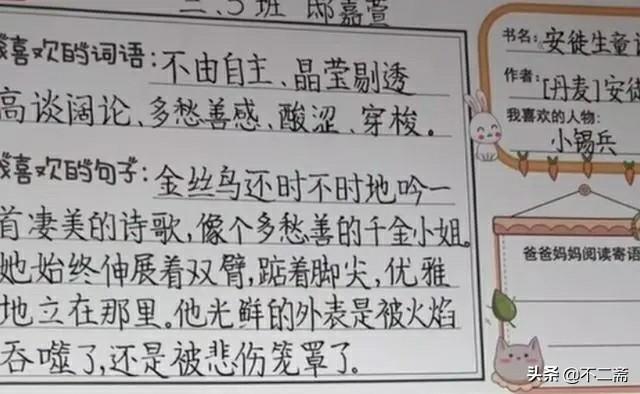 二、3班 邸嘉萱
我喜欢的词语:不由自主、晶莹剔透
高谈阔论、多愁善感、酸涩、穿梭。
我喜欢的句子:金丝鸟还时不时地吟一
首凄美的诗歌,像个多愁善的千金小姐。
她始终伸展着双臂,踮着脚尖,优雅
地立在那里。他光鲜的外表是被火焰
吞噬了,还是被悲伤笼罩了。
书名:安徒生童
作者:[丹麦]安徒
我喜欢的人物:
小锡兵
爸爸妈妈阅读寄语
头条 @不二斋